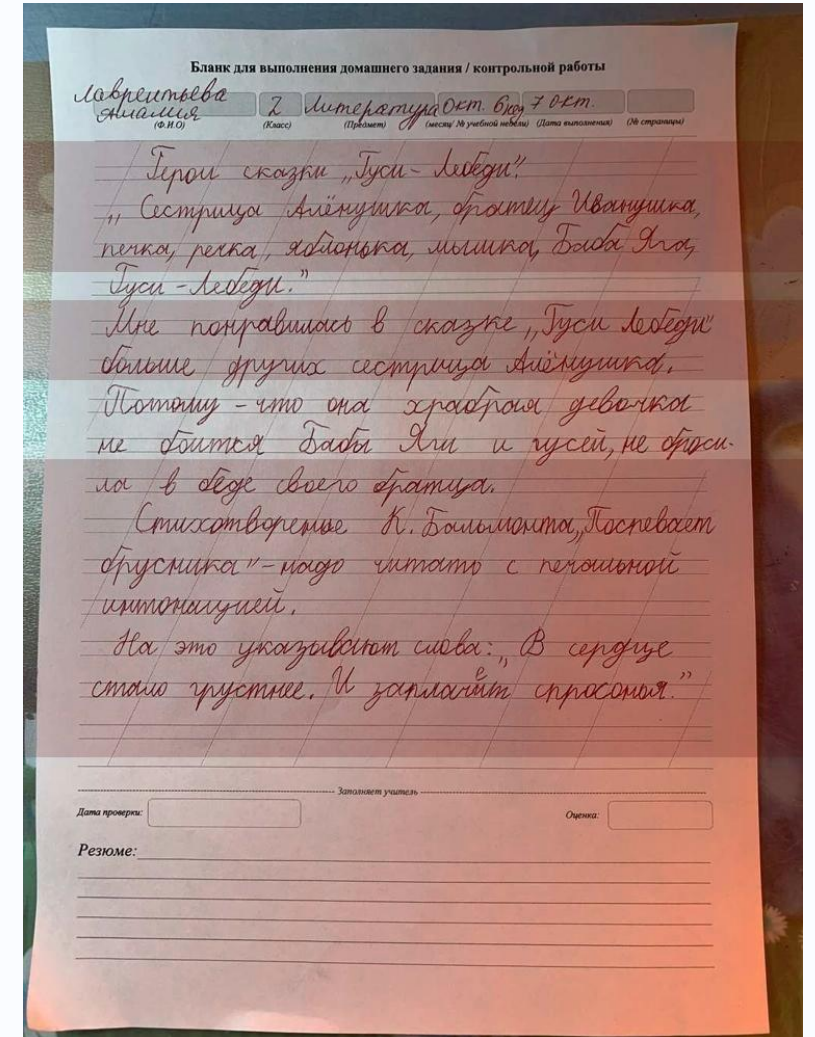 Бланк для выполнения домашнего задания / контрольной работы
Лаврентьева
Амалия 2 Литература Окт. 6нед 7 окт.
(Ф.И.О) (Класс) (Предмет) (месяц/ № учебной недели) (Дата выполнения) (№ страницы)
Герои сказки „Гуси-Лебеди".
„ Сестрица Алёнушка, братец Иванушка,
печка, речка, яблонька, мышка, Баба Яга,
Гуси-Лебеди."
Мне понравилась в сказке „Гуси Лебеди"
больше других сестрица Алёнушка.
Потому-что она храбрая девочка
не боится Бабы Яги и гусей, не броси-
ла в беде своего братца.
Стихотворение К. Бальмонта „Поспевает
брусника" - надо читать с печальной
интонацией.
На это указывают слова: „ В сердце
стало грустнее. И заплачет спросонья."
Заполняет учитель
Дата проверки: Оценка:
Резюме: